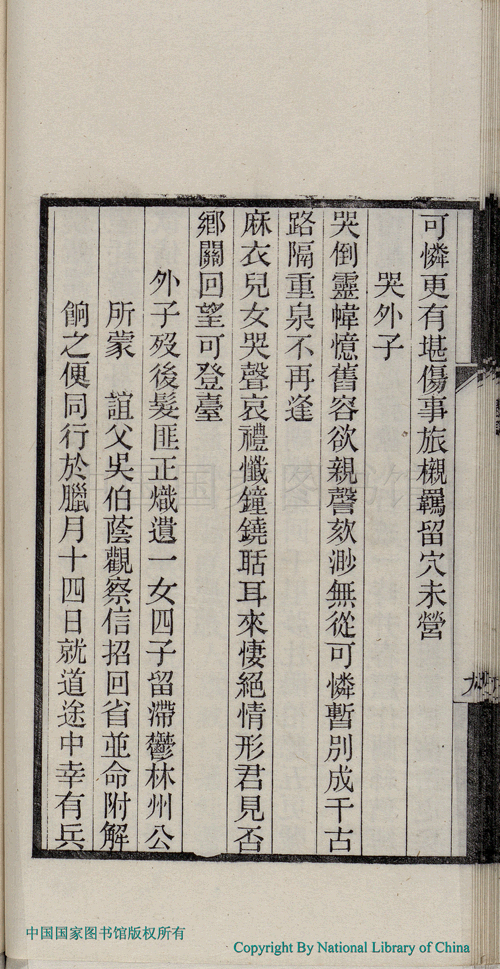 可憐更有堪傷事旅櫬羈留穴未營
哭外子
哭倒靈幃憶舊容欲親謦欬渺無從可憐暫別成千古
路隔重泉不再逢
麻衣兒女哭聲哀禮懺鐘鐃聒耳來悽絕情形君見否
鄉關回望可登臺
外子歿後髮匪正熾遺一女四子留滯鬱林州公
所蒙 誼父吳伯蔭觀察信招回省並命附解
餉之便同行於臘月十四日就道途中幸有兵
中国国家图书馆版权所有
Copyright By National Library of China